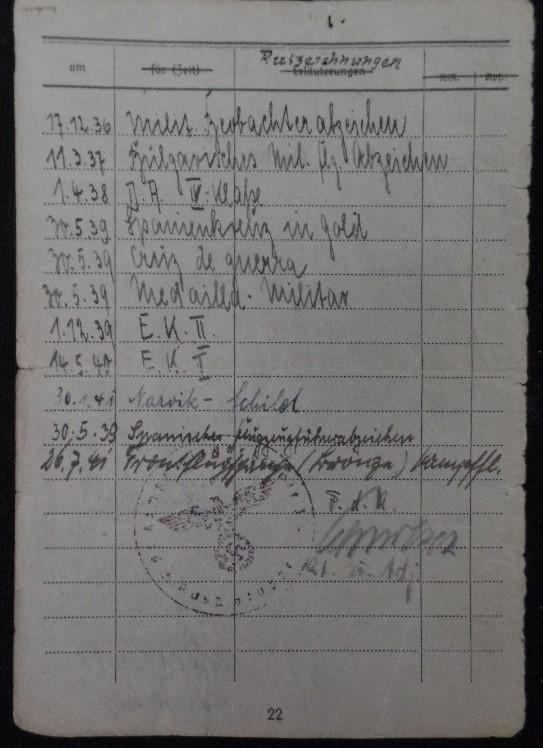 Auszeichnungen
am für (Zeit) Erläuterungen
17.12.36 Milit. Beobachterabzeichen
11.3.37 Bulgarisches Mil. flg. Abzeichen
1.4.38 D.A. IV. Klaße
30.5.39 Spanienkreuz in Gold
30.5.39 Cruz de guerra
30.5.39 Medailla Militar
1.12.39 E.K. II.
14.5.40 E.K. I
30.1.41 Narvik-Schild
30.5.39 Spanisches Flugzeugführerabzeichen
26.7.41 Frontflugspange (Bronze) Kampffl.
F.d.R.
Lt. u. Adj.
22